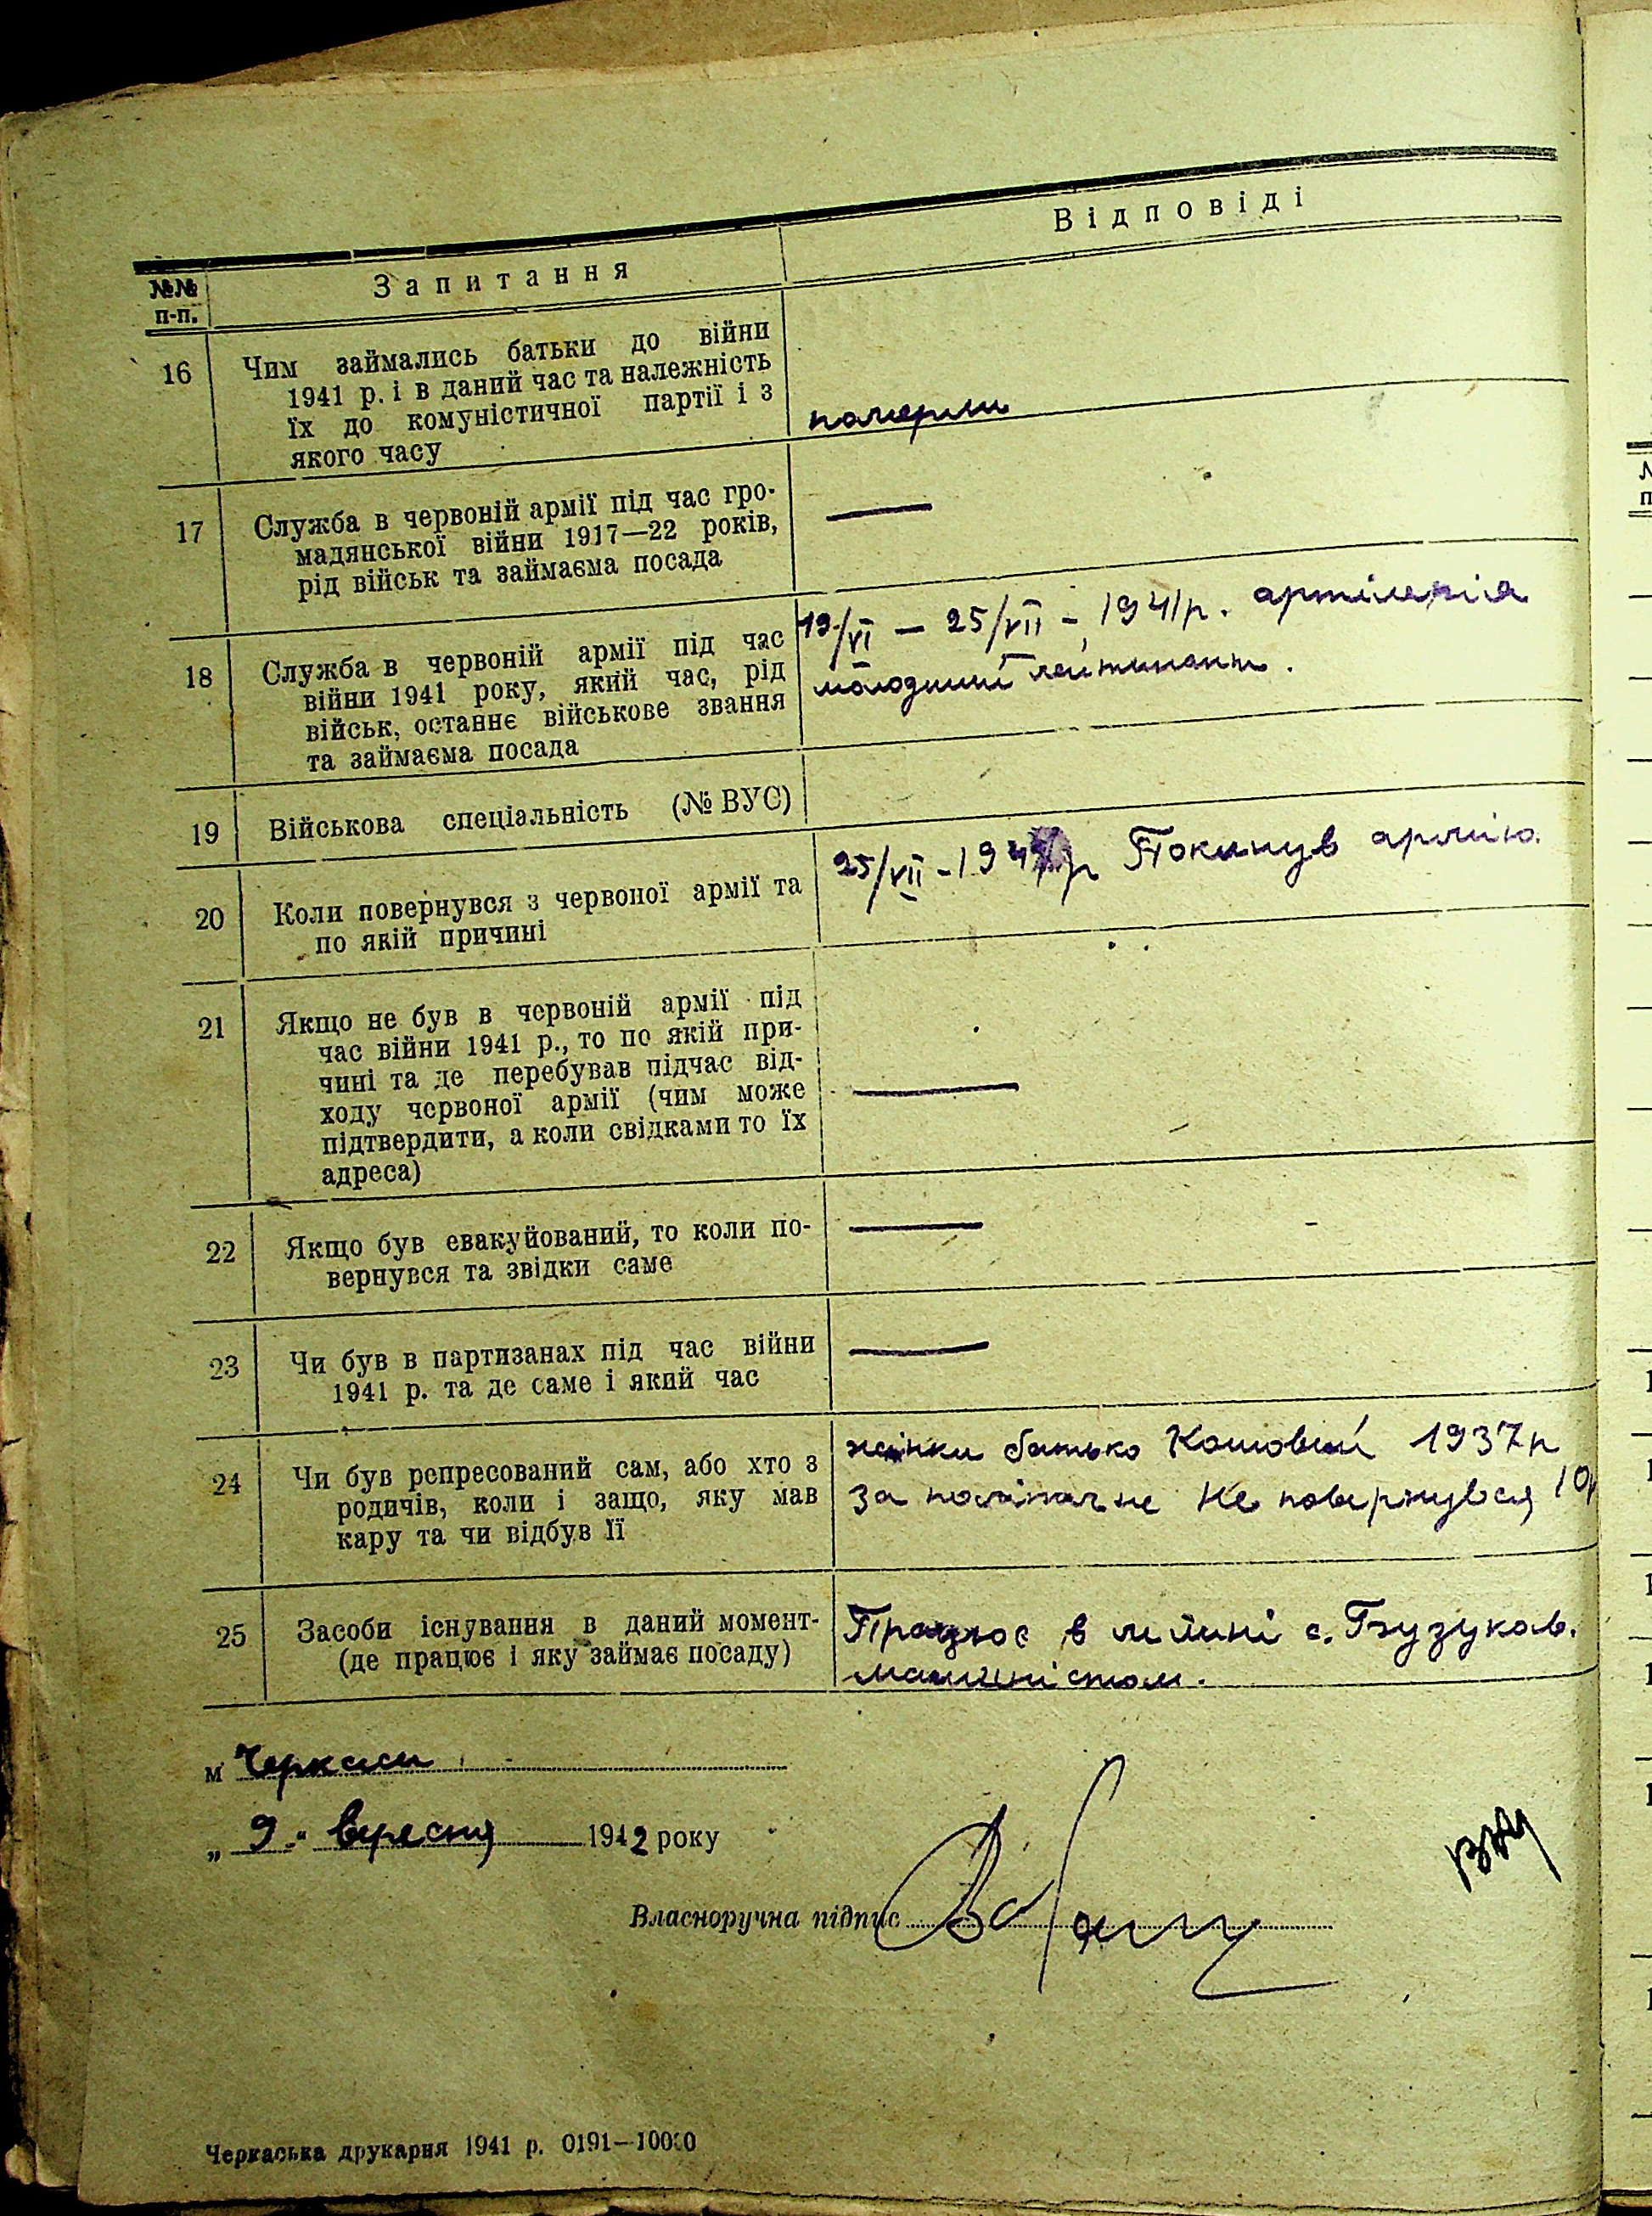 Відповіді
№№ п-п.
Запитання
16
Чим займались батьки до війни
1941 р. і в даний час та належність
їх до комуністичної партії і з
якого часу
померли
17
Служба в червоній армії під час гро-
мадянської війни 1917—22 років,
рід військ та займаєма посада
—
18
Служба в червоній армії під час
війни 1941 року, який час, рід
військ, останнє військове звання
та займаєма посада
19/VI — 25/VII - 1941р. артілерія
молодший лейтинант.
19
Військова спеціальність (№ ВУС)
20
Коли повернувся з червоної армії та
по якій причині
25/VII - 1941р Покинув армію.
21
Якщо не був в червоній армії під
час війни 1941 р., то по якій при-
чині та де перебував підчас від-
ходу червоної армії (чим може
підтвердити, а коли свідками то їх
адреса)
—
22
Якщо був евакуйований, то коли по-
вернувся та звідки саме
—
23
Чи був в партизанах під час війни
1941 р. та де саме і який час
—
24
Чи був репресований сам, або хто з
родичів, коли і защо, яку мав
кару та чи відбув її
жінки батько Кошовий 1937р
За політичне Не повернувся 10р
25
Засоби існування в даний момент-
(де працює і яку займає посаду)
Працює в млині с. Бузуков.
машиністом.
м Черкаси
„ 9 “ вересня 1942 року
Власноручна підпис
Черкаська друкарня 1941 р. 0191—10000